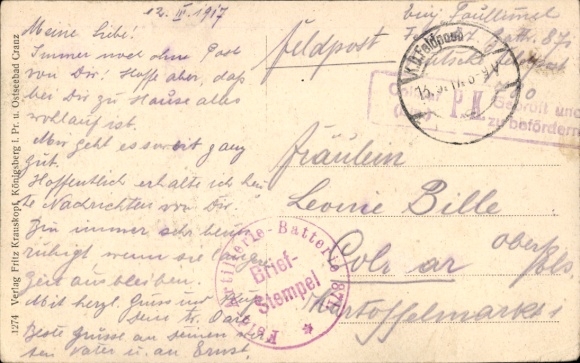 12. II. 1917
Meine Liebe!
Immer noch ohne Post
von Dir! Hoffe aber, daß
bei Dir zu Hause alles
wohlauf ist.
Mir geht es soweit ganz
gut.
Hoffentlich erhalte ich heu-
te Nachrichten von Dir.
Bin immer sehr beun-
ruhigt wenn sie lange
Zeit ausbleiben.
Mit herzl. Gruss und Kuss
dein tr. Paul
Beste Grüsse an deinen
Vater u. an Ernst.
1274 Verlag Fritz Krauskopf, Königsberg i. Pr. u. Ostseebad Cranz
Feldpost
K.D. Feldpost
P.K.
Geprüft und
zu befördern
Fräulein
Leonie Bille
Colmar
Ober Els.
Kartoffelmarkt 1
Artillerie-Batterie 871
Brief-
Stempel